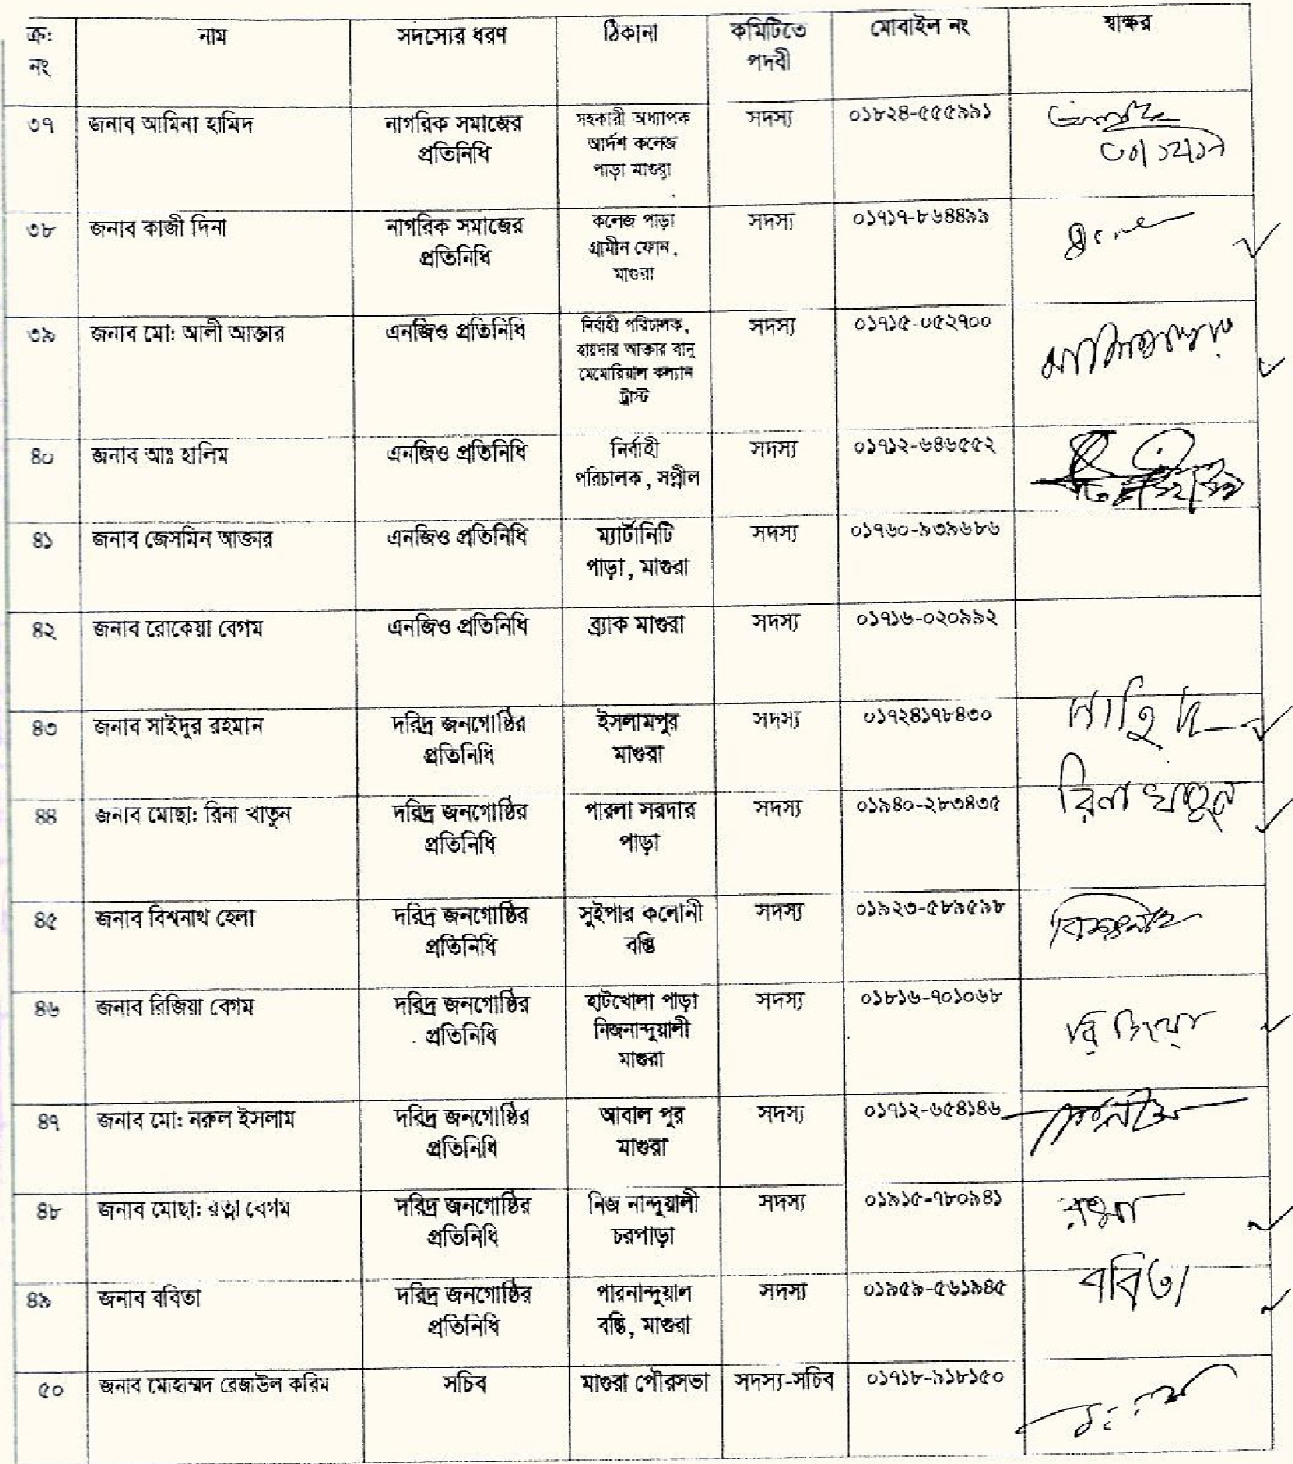 ক্র: নং	নাম	সদস্যের ধরণ	ঠিকানা	কমিটিতে পদবী	মোবাইল নং	স্বাক্ষর
৩৭	জনাব আমিনা হামিদ	নাগরিক সমাজের প্রতিনিধি	সহকারী অধ্যাপক আর্দশ কলেজ পাড়া মাগুরা	সদস্য	০১৮২৪-৫৫৫৯৯১
৩৮	জনাব কাজী দিনা	নাগরিক সমাজের প্রতিনিধি	কলেজ পাড়া গ্রামীন ফোন, মাগুরা	সদস্য	০১৭১৭-৮৬৪৪৯৯
৩৯	জনাব মো: আলী আক্তার	এনজিও প্রতিনিধি	নির্বাহী পরিচালক, হায়দার আক্তার বানু মেমোরিয়াল কল্যান ট্রাস্ট	সদস্য	০১৭১৫-০৫২৭০০
৪০	জনাব আঃ হালিম	এনজিও প্রতিনিধি	নির্বাহী পরিচালক,	সদস্য	০১৭১২-৬৪৬৫৫২
৪১	জনাব জেসমিন আক্তার	এনজিও প্রতিনিধি	ম্যার্টানিটি পাড়া, মাগুরা	সদস্য	০১৭৬০-৯৩৯৬৮৬
৪২	জনাব রোকেয়া বেগম	এনজিও প্রতিনিধি	ব্র্যাক মাগুরা	সদস্য	০১৭১৬-০২০৯৯২
৪৩	জনাব সাইদুর রহমান	দরিদ্র জনগোষ্ঠির প্রতিনিধি	ইসলামপুর মাগুরা	সদস্য	০১৭২৪১৭৮৪৩০
৪৪	জনাব মোছা: রিনা খাতুন	দরিদ্র জনগোষ্ঠির প্রতিনিধি	পারলা সরদার পাড়া	সদস্য	০১৯৪০-২৮৩৪৩৫	রিনা খাতুন
৪৫	জনাব বিশ্বনাথ হেলা	দরিদ্র জনগোষ্ঠির প্রতিনিধি	সুইপার কলোনী বস্তি	সদস্য	০১৯২৩-৫৮৯৫৯৮	বিশ্বনাথ
৪৬	জনাব রিজিয়া বেগম	দরিদ্র জনগোষ্ঠির প্রতিনিধি	হাটখোলা পাড়া নিজনান্দুয়ালী মাগুরা	সদস্য	০১৮১৬-৭০১০৬৮	রিজিয়া
৪৭	জনাব মো: নরুল ইসলাম	দরিদ্র জনগোষ্ঠির প্রতিনিধি	আবাল পুর মাগুরা	সদস্য	০১৭১২-৬৫৪১৪৬
৪৮	জনাব মোছা: রত্না বেগম	দরিদ্র জনগোষ্ঠির প্রতিনিধি	নিজ নান্দুয়ালী চরপাড়া	সদস্য	০১৯১৫-৭৮০৯৪১	রত্না
৪৯	জনাব ববিতা	দরিদ্র জনগোষ্ঠির প্রতিনিধি	পারনান্দুয়াল বস্তি, মাগুরা	সদস্য	০১৯৫৯-৫৬১৯৪৫	ববিতা
৫০	জনাব মোহাম্মদ রেজাউল করিম	সচিব	মাগুরা পৌরসভা	সদস্য-সচিব	০১৭১৮-৯১৮১৫০